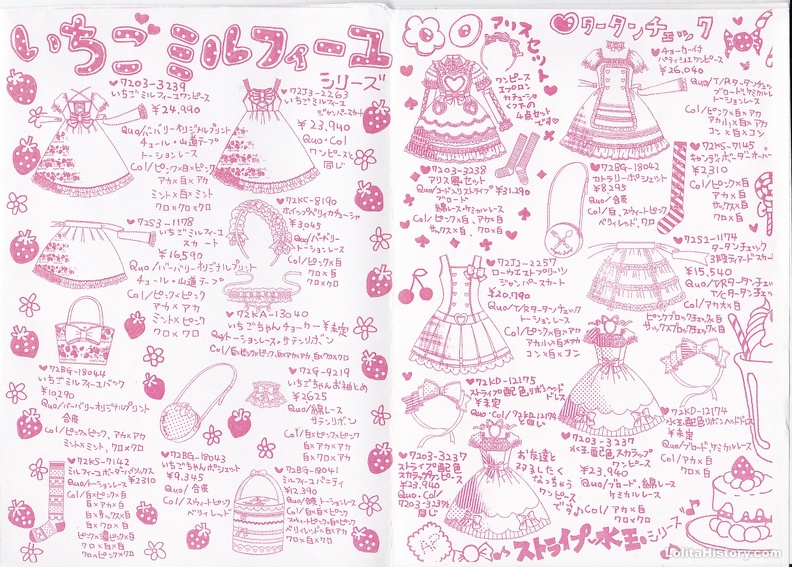 いちごミルフィーユ
シリーズ
♥7203-3239
いちごミルフィーユワンピース
¥24,990
Quo/バーバリーオリジナルプリント
チュール・山道テープ
トーションレース
Col/ピンク×白×ピンク
アカ×白×アカ
ミント×白×ミント
クロ×白×クロ
♥72J3-2263
いちごミルフィーユ
ジャンパースカート
¥23,940
Quo・Col
ワンピースと
同じ
♥72S3-1178
いちごミルフィーユ
スカート
¥16,590
Quo/バーバリーオリジナルプリント
チュール・山道テープ
Col/ピンク×ピンク
アカ×アカ
ミント×ミント
クロ×クロ
♥72KC-8190
ホイップベリーカチューシャ
¥3,045
Quo/バーバリー
トーションレース
Col/ピンク×白
アカ×白
クロ×白
クロ×クロ
♥72KA-13040
いちごちゃんチョーカー ¥未定
Quo/トーションレース・サテンリボン
♥72BG-18044
いちごミルフィーユバック
¥10,290
Quo/バーバリーオリジナルプリント
合皮
Col/ピンク×ピンク、アカ×アカ
ミント×ミント、クロ×クロ
♥72G-9219
いちごちゃんお袖とめ
¥2,625
Quo/綿レース
サテンリボン
Col/白×ピンク×ピンク
白×アカ×アカ
白×クロ×クロ
♥72KS-7142
ミルフィーユボーダーハイソックス
Quo/トーションレース ¥2,310
Col/白×ピンク×白
白×アカ×白
白×サックス×白
白×クロ×白
ピンク×濃ピンク×白
クロ×白×白
クロ×白×クロ
♥72BG-18043
いちごちゃんポシェット
¥9,345
Quo/合皮
Col/スウィートピンク
ベリィレッド
♥72BG-18041
ミルフィーユバニティ
¥12,390
Quo/合皮・トーションレース
Col/白×白×ピンク
スウィートピンク×白×ピンク
ベリィレッド×白×アカ
クロ×白×クロ
アリスセット♥
ワンピース
エプロン
カチューシャ
くつ下の
4点セット
です♡
♥7203-3238
アリス風セット
¥31,290
ブロード
綿レース・ケミカルレース
Col/ピンク×白、アカ×白
サックス×白、クロ×白
♥タータンチェック
♥チョーカー付
パティシエワンピース
¥26,040
Quo/T/Rタータンチェック
ブロード・ケミカルレース
トーションレース
Col/ピンク×白×アカ
アカ×白×アカ
コン×白×コン
♥72BG-18042
カトラリーポシェット
¥8295
Quo/合皮
Col/白、スウィートピンク
ベリィレッド、クロ
♥72KS-7145
キャンディボーダーオーバー
¥2310
Col/ピンク×白
アカ×白
サックス×白
クロ×白
♥72J2-2257
ローウエストプリーツ
ジャンパースカート
¥20,790
Quo/T/Rタータンチェック
トーションレース
Col/ピンク×白×アカ
アカ×白×アカ
コン×白×コン
♥72S2-1174
タータンチェック
3段ティアードスカート
¥15,540
Quo/T/Rタータンチェック
T/Cタータンチェック
Col/アカ×白
ピンクブロックチェック×白
サックスブロックチェック×白
♥72KD-12175
ストライプ配色リボンヘッドドレス
¥未定
Quo・Col/72KD-12174
と同じ
♥72KD-12174
水玉配色リボンヘッドドレス
¥未定
Quo/ブロード、ケミカルレース
Col/ピンク×白
アカ×白
クロ×白
♥7203-3237
ストライプ配色
スカラップワンピース
¥23,940
Quo・Col
7203-3237と
同じ
お友達と
双子したく
なっちゃう
ワンピース
です♪
♥7203-3237
水玉配色スカラップ
ワンピース
¥23,940
Quo/ブロード、綿レース
ケミカルレース
Col/アカ×白
クロ×クロ
ストライプ・水玉シリーズ
LolitaHistory.com